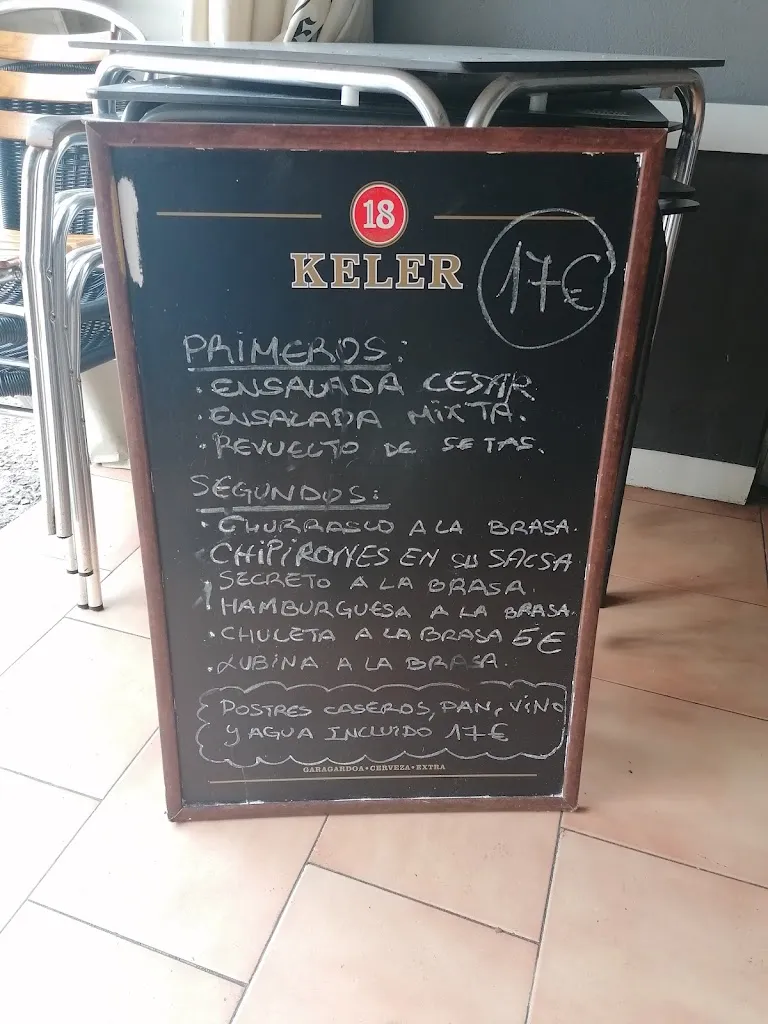 18
KELER
17€
PRIMEROS:
· ENSALADA CESAR.
· ENSALADA MIXTA.
· REVUELTO DE SETAS.
SEGUNDOS:
· CHURRASCO A LA BRASA.
CHIPIRONES EN SU SALSA
SECRETO A LA BRASA.
HAMBURGUESA A LA BRASA.
· CHULETA A LA BRASA 5€
· LUBINA A LA BRASA.
POSTRES CASEROS, PAN, VINO
Y AGUA INCLUIDO 17€
GARAGARDOA · CERVEZA · EXTRA